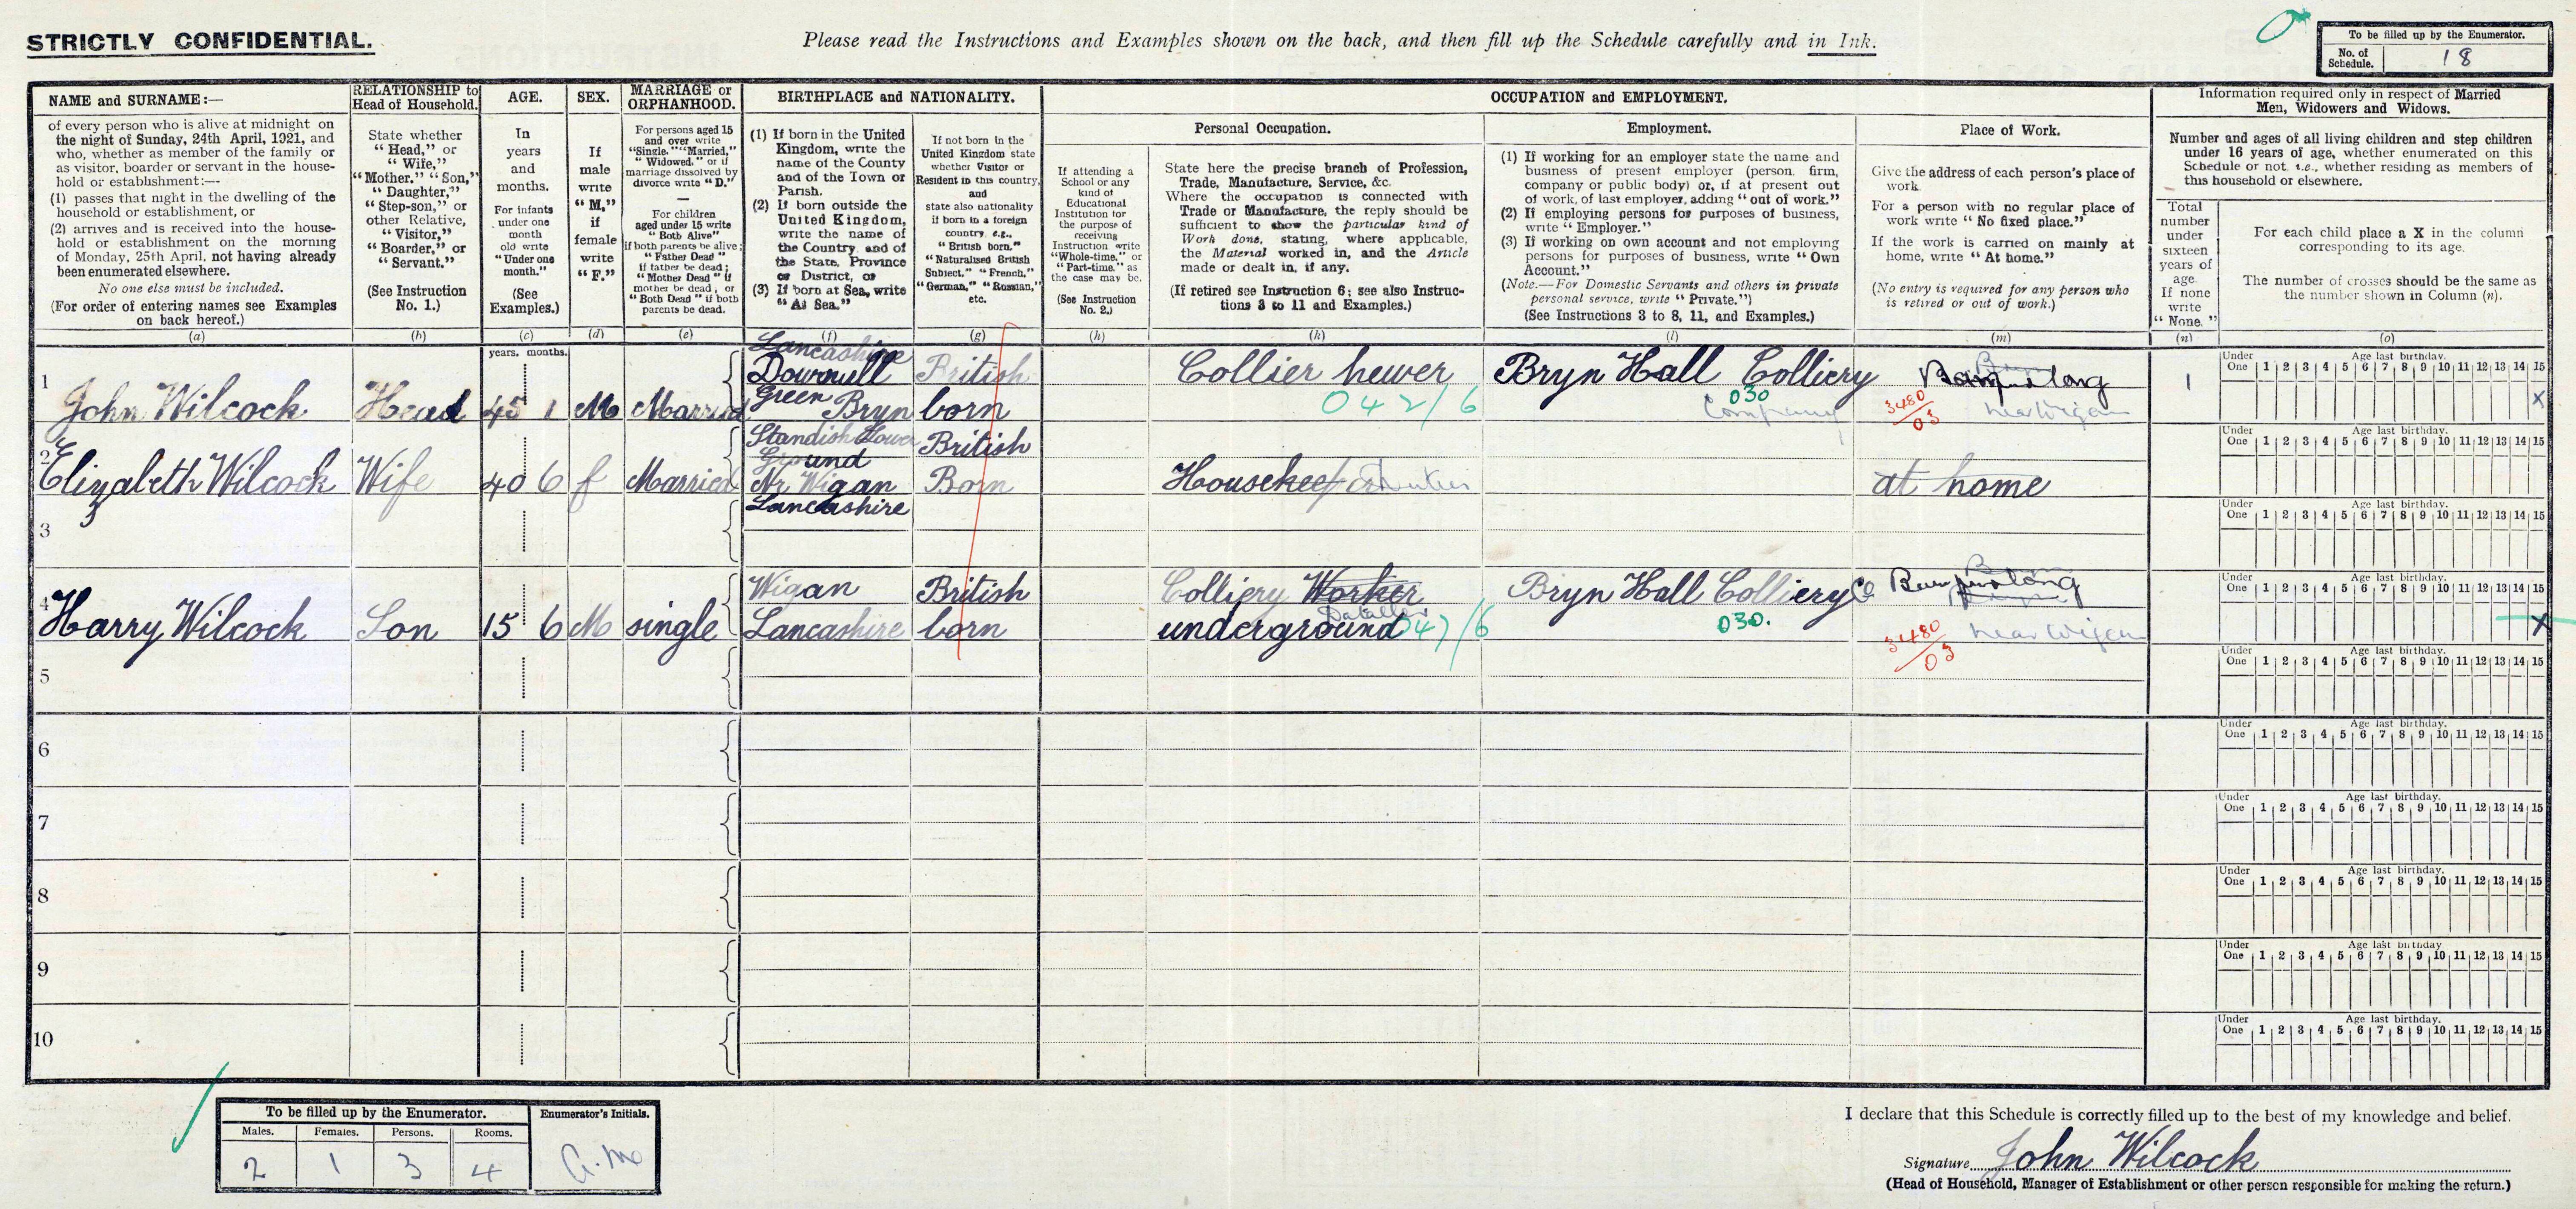 STRICTLY CONFIDENTIAL.
Please read the Instructions and Examples shown on the back, and then fill up the Schedule carefully and in Ink.
To be filled up by the Enumerator.
No. of Schedule. 18
NAME and SURNAME:—
of every person who is alive at midnight on
the night of Sunday, 24th April, 1921, and
who, whether as member of the family or
as visitor, boarder or servant in the house-
hold or establishment:—
(1) passes that night in the dwelling of the
household or establishment, or
(2) arrives and is received into the house-
hold or establishment on the morning
of Monday, 25th April, not having already
been enumerated elsewhere.
No one else must be included.
(For order of entering names see Examples
on back hereof.)
(a)
RELATIONSHIP to
Head of Household.
State whether
"Head," or
"Wife,"
"Mother," "Son,"
"Daughter,"
"Step-son," or
other Relative,
"Visitor,"
"Boarder," or
"Servant."
(See Instruction
No. 1.)
(b)
AGE.
In
years
and
months.
For infants
under one
month
old write
"Under one
month."
(See
Examples.)
(c)
SEX.
If
male
write
"M,"
if
female
write
"F."
(d)
MARRIAGE or
ORPHANHOOD.
For persons aged 15
and over write
"Single," "Married,"
"Widowed," or if
marriage dissolved by
divorce write "D."
—
For children
aged under 15 write
"Both Alive"
if both parents be alive;
"Father Dead"
if father be dead;
"Mother Dead" if
mother be dead; or
"Both Dead" if both
parents be dead.
(e)
BIRTHPLACE and NATIONALITY.
(1) If born in the United
Kingdom, write the
name of the County
and of the Town or
Parish.
(2) If born outside the
United Kingdom,
write the name of
the Country, and of
the State, Province
or District, or
(3) If born at Sea, write
"At Sea."
(f)
If not born in the
United Kingdom state
whether Visitor or
Resident in this country,
and
state also nationality
if born in a foreign
country, e.g.,
"British born,"
"Naturalised British
Subject," "French,"
"German," "Russian,"
etc.
(g)
OCCUPATION and EMPLOYMENT.
If attending a
School or any
kind of
Educational
Institution for
the purpose of
receiving
Instruction write
"Whole-time," or
"Part-time," as
the case may be.
(See Instruction
No. 2.)
(h)
Personal Occupation.
State here the precise branch of Profession,
Trade, Manufacture, Service, &c.
Where the occupation is connected with
Trade or Manufacture, the reply should be
sufficient to show the particular kind of
Work done, stating, where applicable,
the Material worked in, and the Article
made or dealt in, if any.
(If retired see Instruction 6; see also Instruc-
tions 3 to 11 and Examples.)
(k)
Employment.
(1) If working for an employer state the name and
business of present employer (person, firm,
company or public body) or, if at present out
of work, of last employer, adding "out of work."
(2) If employing persons for purposes of business,
write "Employer."
(3) If working on own account and not employing
persons for purposes of business, write "Own
Account."
(Note.—For Domestic Servants and others in private
personal service, write "Private.")
(See Instructions 3 to 8, 11, and Examples.)
(l)
Place of Work.
Give the address of each person's place of
work.
For a person with no regular place of
work write "No fixed place."
If the work is carried on mainly at
home, write "At home."
(No entry is required for any person who
is retired or out of work.)
(m)
Information required only in respect of Married
Men, Widowers and Widows.
Number and ages of all living children and step children
under 16 years of age, whether enumerated on this
Schedule or not, i.e., whether residing as members of
this household or elsewhere.
Total
number
under
sixteen
years of
age.
If none
write
"None."
(n)
For each child place a X in the column
corresponding to its age.
The number of crosses should be the same as
the number shown in Column (n).
(o)
years. months.
Lancashire
1 John Wilcock Head 45 1 M Married Downall Green Bryn British born Collier hewer 042/6 Bryn Hall Colliery Company 030 3480/03 near Wigan 1
Under One 1 2 3 4 5 6 7 8 9 10 11 12 13 14 15
Age last birthday.
X
2 Elizabeth Wilcock Wife 40 6 f Married Standish Lower Ground Nr Wigan Lancashire British Born at home
Under One 1 2 3 4 5 6 7 8 9 10 11 12 13 14 15
Age last birthday.
3
Under One 1 2 3 4 5 6 7 8 9 10 11 12 13 14 15
Age last birthday.
4 Harry Wilcock Son 15 6 M single Wigan Lancashire British born Colliery Worker underground 047/6 Bryn Hall Colliery Co 030. 3480/03 near Wigan
Under One 1 2 3 4 5 6 7 8 9 10 11 12 13 14 15
Age last birthday.
X
5
Under One 1 2 3 4 5 6 7 8 9 10 11 12 13 14 15
Age last birthday.
6
Under One 1 2 3 4 5 6 7 8 9 10 11 12 13 14 15
Age last birthday.
7
Under One 1 2 3 4 5 6 7 8 9 10 11 12 13 14 15
Age last birthday.
8
Under One 1 2 3 4 5 6 7 8 9 10 11 12 13 14 15
Age last birthday.
9
Under One 1 2 3 4 5 6 7 8 9 10 11 12 13 14 15
Age last birthday
10
Under One 1 2 3 4 5 6 7 8 9 10 11 12 13 14 15
Age last birthday.
To be filled up by the Enumerator.
Enumerator's Initials.
Males. Females. Persons. Rooms.
2 1 3 4
I declare that this Schedule is correctly filled up to the best of my knowledge and belief.
Signature John Wilcock
(Head of Household, Manager of Establishment or other person responsible for making the return.)